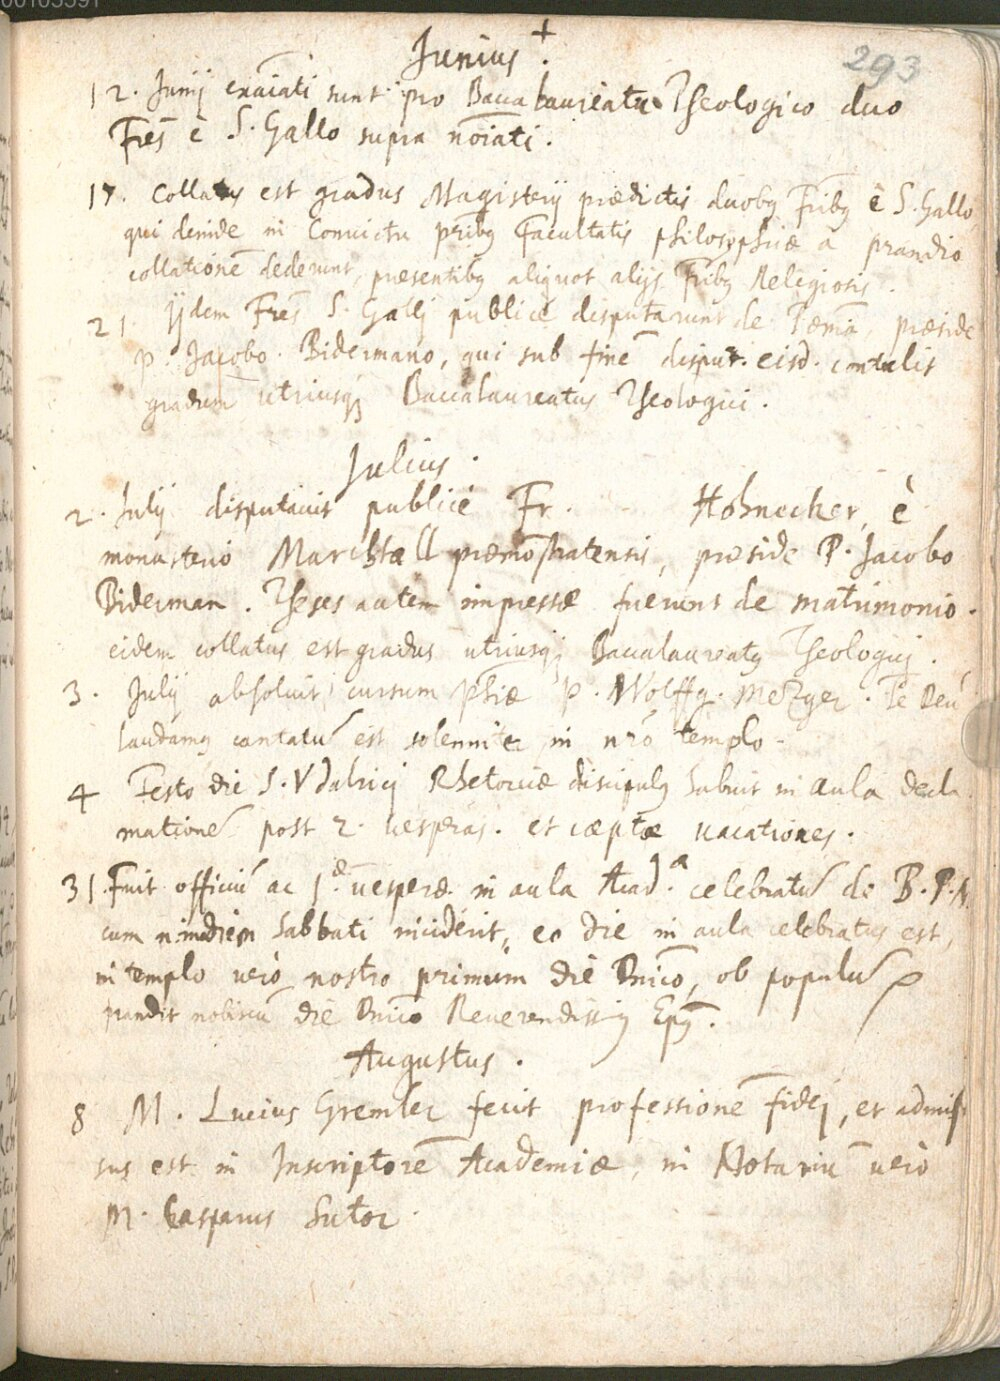 00103391
Junius +.
293
12. Junij exāiati sunt pro Baccalaureatu Theologico duo
Frēs è S. Gallo supra nōiati.
17. Collatus est gradus Magisterij prædictis duobq Frībq è S. Gallo,
qui deinde in Convictu prībq Facultatis philosophiæ a prandio
collationē dederunt, præsentibq aliquot alijs Frībq Religiosis.
21. Ijdem Frēs S. Galli publicè disputarunt de præside
P. Jacobo Bidermano, qui sub finē disput. eisd. contulit
gradum utriusq Baccalaureatus Theologici.
Julius.
2. Julij disputavit publicè Fr. Hohnecker, è
monasterio Marchtall præmonstratensis, præside P. Jacobo
Biderman. Theses autem impressæ fuerunt de matrimonio.
eidem collatus est gradus utriusq Baccalaureatq Theologici.
3. Julij absoluit cursum Phiæ P. Wolffg. Mezger. Te Deū
laudamq cantatū est solenniter in nrō templo.
4 Festo die S. Vdalrici Rhetoricæ discipulq habuit in aula decla
mationē post 2. vesperas. et cæptæ vacationes.
31. Fuit officiū ac 1æ vesperæ in aula Acad.a celebratū de B. P. N.
cum in diem Sabbati inciderit, eo die in aula celebratus est,
in templo verò nostro primùm die Dnīco, ob populū
prandit nobiscū die Dnīco Reverendissimq Epq.
Augustus.
8 M. Lucius Gremler fecit professionē fidei, et admis
sus est in Inscriptorē Academiæ, in Notariū verò
M. Casparus Sutor.